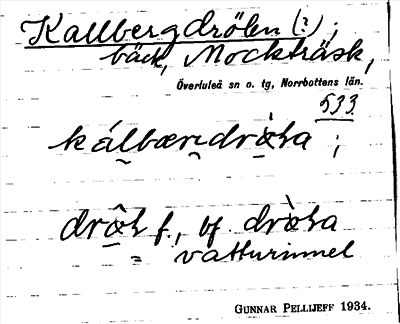 Kallbergdrölen (?);
bäck, Mockträsk,
Överluleå sn o. tg, Norrbottens län.
533
kálbærṇdrò̤ła ;
drô̤ł f., bf. drò̤ła
vatturinnel
GUNNAR PELLIJEFF 1934.